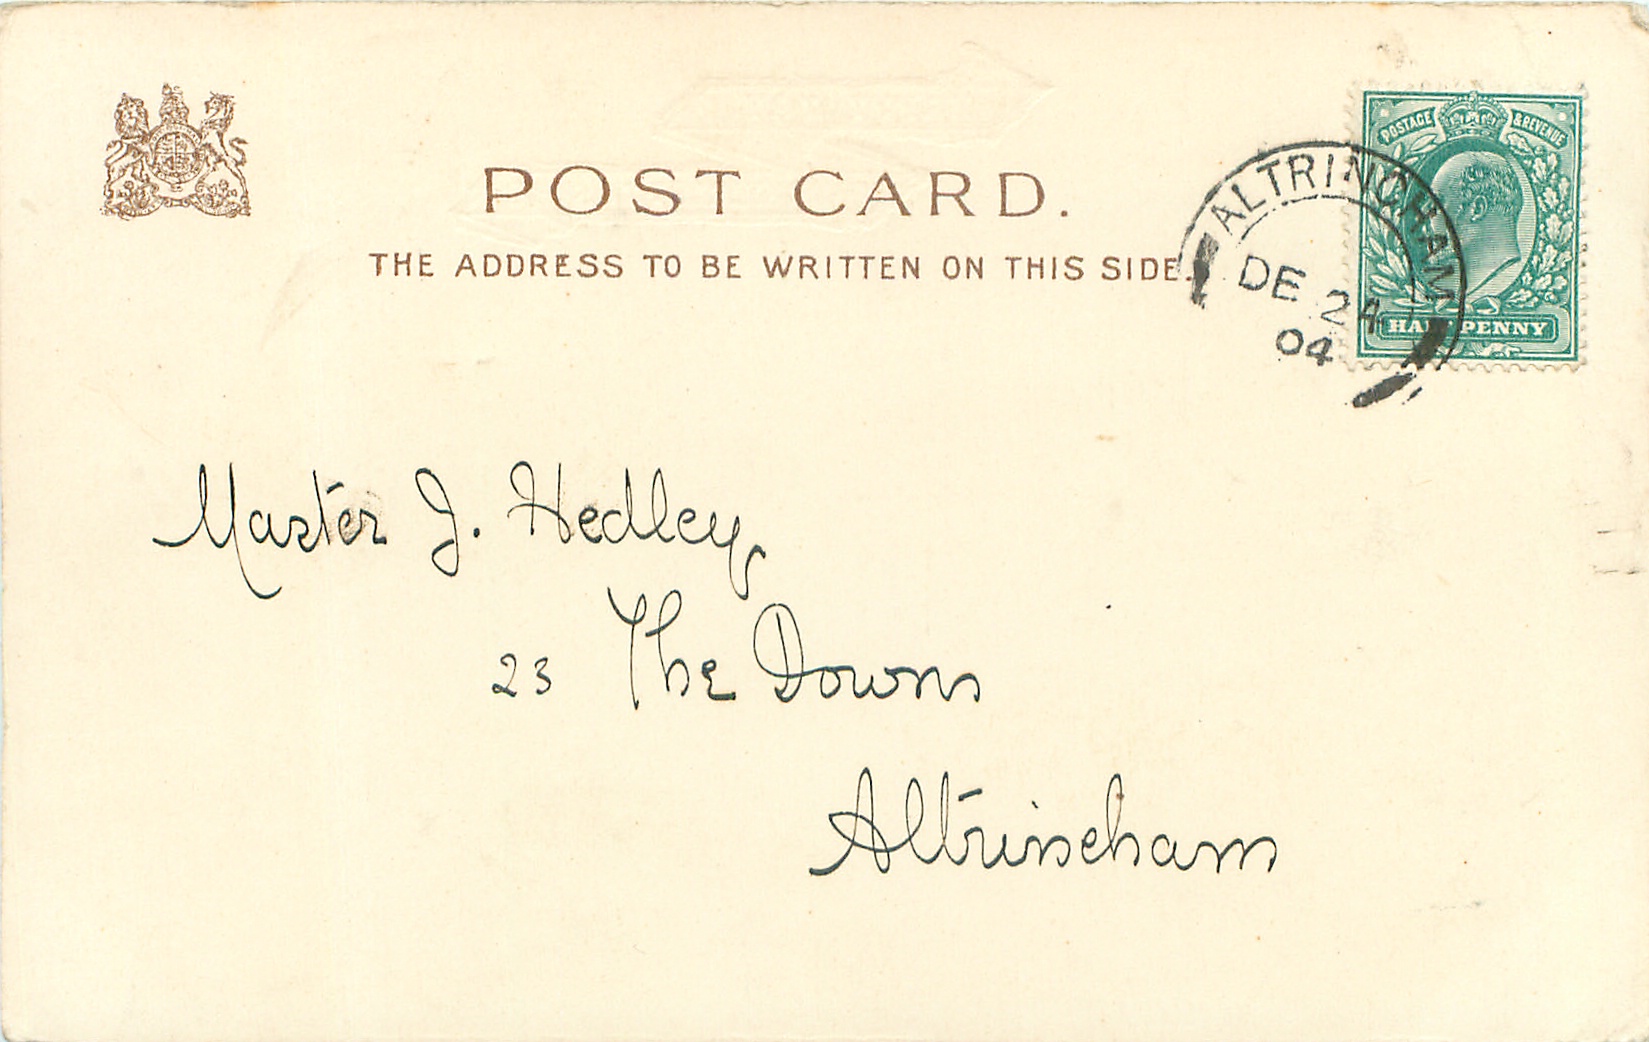 POST CARD.
THE ADDRESS TO BE WRITTEN ON THIS SIDE.
POSTAGE & REVENUE
HALFPENNY
ALTRINCHAM
DE 24
04
Master J. Hedley,
23 The Downs
Altrincham